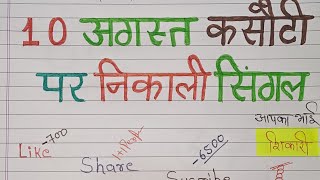 10 अगस्त कसौटी
पर निकाली सिंगल
आपका भाई
शिकारी
-700
Like
Share
-6500